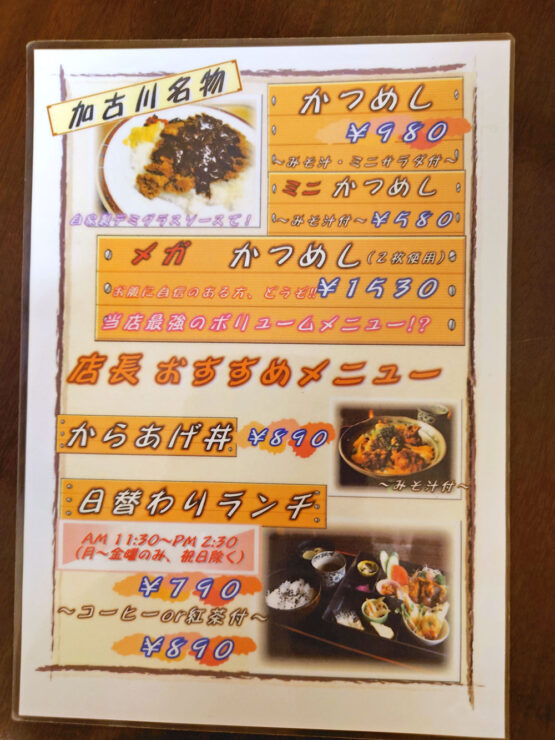 加古川名物
かつめし
¥980
～みそ汁・ミニサラダ付～
ミニ かつめし
～みそ汁付～ ¥580
自家製デミグラスソースで!
メガ かつめし(2枚使用)
お腹に自信のある方、どうぞ!! ¥1530
当店最強のボリュームメニュー!?
店長 おすすめメニュー
からあげ丼 ¥890
～みそ汁付～
日替わりランチ
AM 11:30～PM 2:30
(月～金曜のみ、祝日除く)
¥790
～コーヒーor紅茶付～
¥890